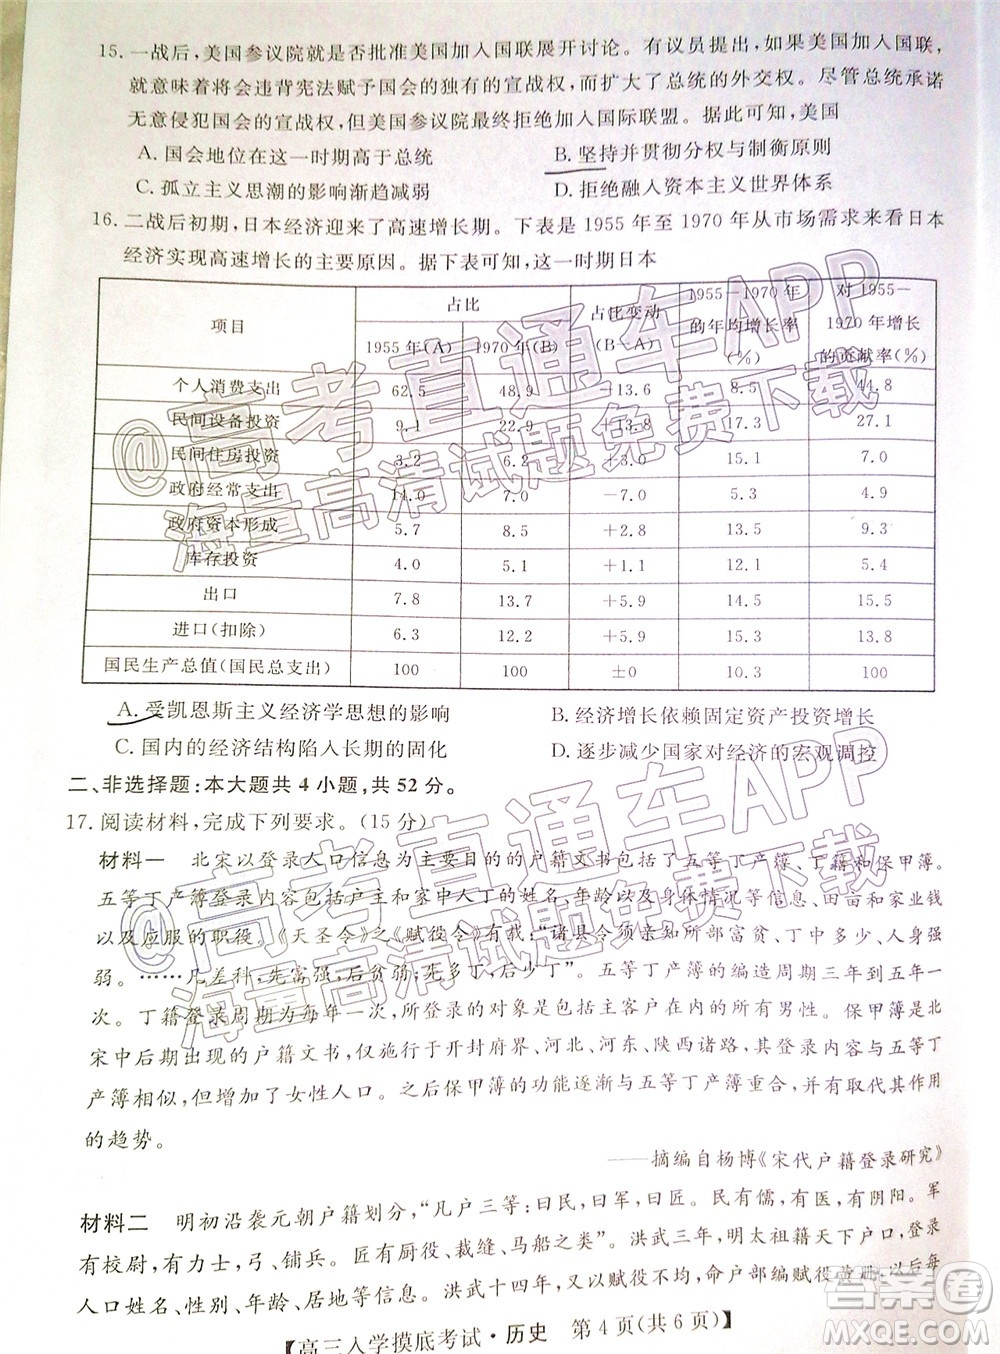 15. 一战后,美国参议院就是否批准美国加入国联展开讨论。有议员提出,如果美国加入国联,
就意味着将会违背宪法赋予国会的独有的宣战权,而不是限制了总统的外交权。尽管总统承诺
无意侵犯国会的宣战权,但美国参议院最终拒绝加入国际联盟。据此可知,美国
A. 国会地位在这一时期高于总统 B. 坚持并贯彻分权与制衡原则
C. 孤立主义思潮的影响渐趋减弱 D. 拒绝融入资本主义世界体系
16. 二战后初期,日本经济迎来了高速增长期。下表是 1955 年至 1970 年从市场需求来看日本
经济实现高速增长的主要原因。据下表可知,这一时期日本
项目 占比 占比变动(B—A) 1955—1970 年的年均增长率(%) 对 1955—1970 年增长的贡献率(%)
1955 年(A) 1970 年(B)
个人消费支出 62.5 48.9 −13.6 8.5 44.8
民间设备投资 9.1 22.9 +13.8 17.3 27.1
民间住房投资 3.2 6.2 15.1 7.0
政府经常支出 14.0 7.0 −7.0 5.3 4.9
政府资本形成 5.7 8.5 +2.8 13.5 9.3
库存投资 4.0 5.1 +1.1 12.2 5.4
出口 7.8 13.7 +5.9 14.5 15.5
进口(扣除) 6.3 12.2 +5.9 15.3 13.8
国民生产总值(国民总支出) 100 100 ±0 10.3 100
A. 受凯恩斯主义经济学思想的影响 B. 经济增长依赖固定资产投资增长
C. 国内的经济结构陷入长期的固化 D. 逐步减少国家对经济的宏观调控
二、非选择题:本大题共 4 小题,共 52 分。
17. 阅读材料,完成下列要求。(15 分)
材料一 北宋以登录人口信息为主的户籍文书包括了五等丁产簿、丁籍和保甲簿。
五等丁产簿登录内容包括户主和家中人丁的姓名、年龄以及拥有的田亩和家业钱
以及应服的职役。《天圣令》之《赋役令》有载:“诸县令须亲知所部富贫、丁中多少、人身强
弱。……凡差科,先富强,后贫弱;先多丁,后少丁”。五等丁产簿的编造周期三年到五年一
次。丁籍登录周期为每年一次,所登录的对象包括了主客户在内的成年男性。保甲簿是北
宋中后期出现的户籍文书,仅施行于开封府界、河北、河东、陕西诸路,其登录内容与五等丁
产簿相似,但增加了女性人口。之后保甲簿的功能逐渐与五等丁产簿重合,并有取代其作用
的趋势。
——摘编自杨博《宋代户籍登录研究》
材料二 明初沿袭元朝户籍划分,“凡户三等:曰民,曰军,曰匠。民有儒,有医,有阴阳。军
有校尉,有力士,弓、铺兵。匠有厨役、裁缝、马船之类”。洪武三年,明太祖籍天下户口,每
户给以户帖,
人口姓名、性别、年龄、居地等信息。洪武十四年,太祖以赋役不均,命户部编造黄册,以后每
【高三入学摸底考试·历史 第 4 页(共 6 页)】
@高考直通车APP
海量高清试题免费下载
@高考直通车APP
海量高清试题免费下载
答案圈
MXQE.COM